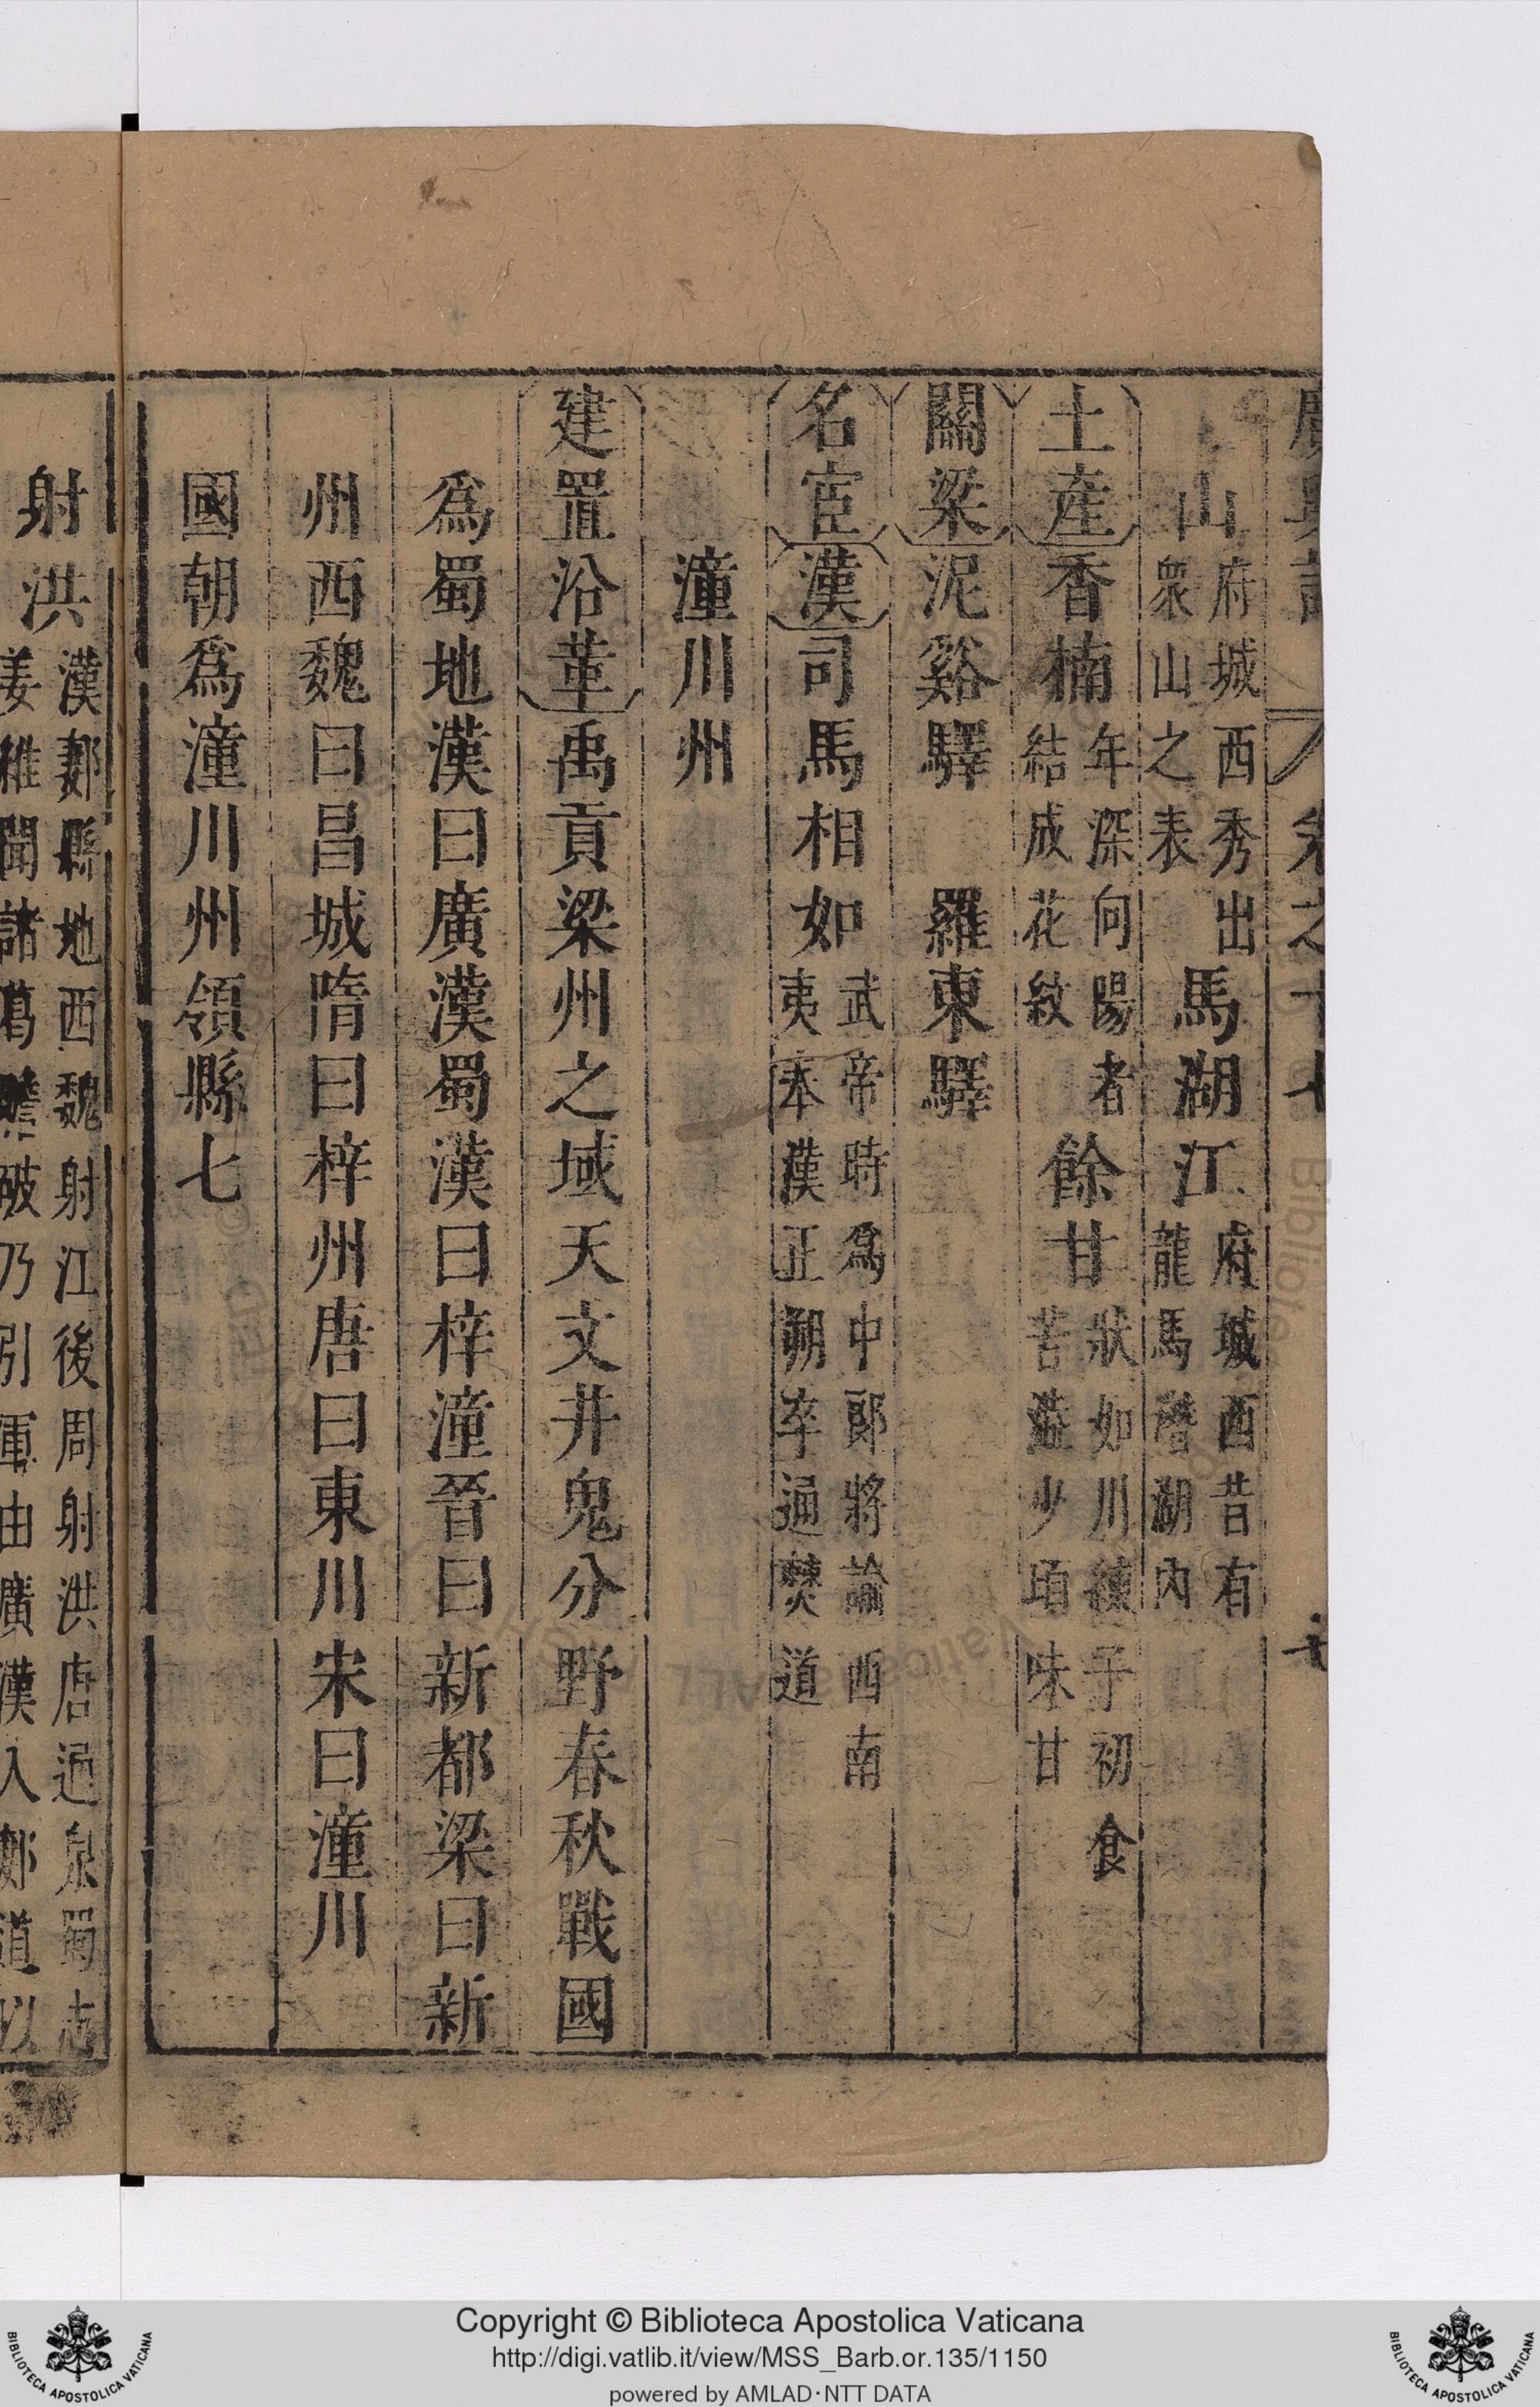 山府城西秀出衆山之表　馬湖江府城西昔有龍馬潛湖內
土產香楠年深向陽者結成花紋　餘甘狀如川練子初食苦澁少頃味甘
關梁泥谿驛　羅東驛
名宦漢司馬相如武帝時爲中郎將諭西南夷奉漢正朔卒通僰道
潼川州
建置沿革禹貢梁州之域天文井鬼分野春秋戰國
爲蜀地漢曰廣漢蜀漢曰梓潼晉曰新都梁曰新
州西魏曰昌城隋曰梓州唐曰東川宋曰潼川
國朝爲潼川州領縣七
射洪漢郪縣地西魏射江後周射洪唐通泉蜀志
姜維聞諸葛瞻破乃引軍由廣漢入郪道以
Copyright © Biblioteca Apostolica Vaticana
http://digi.vatlib.it/view/MSS_Barb.or.135/1150
powered by AMLAD·NTT DATA
BIBLIOTECA APOSTOLICA VATICANA
BIBLIOTECA APOSTOLICA VATICANA